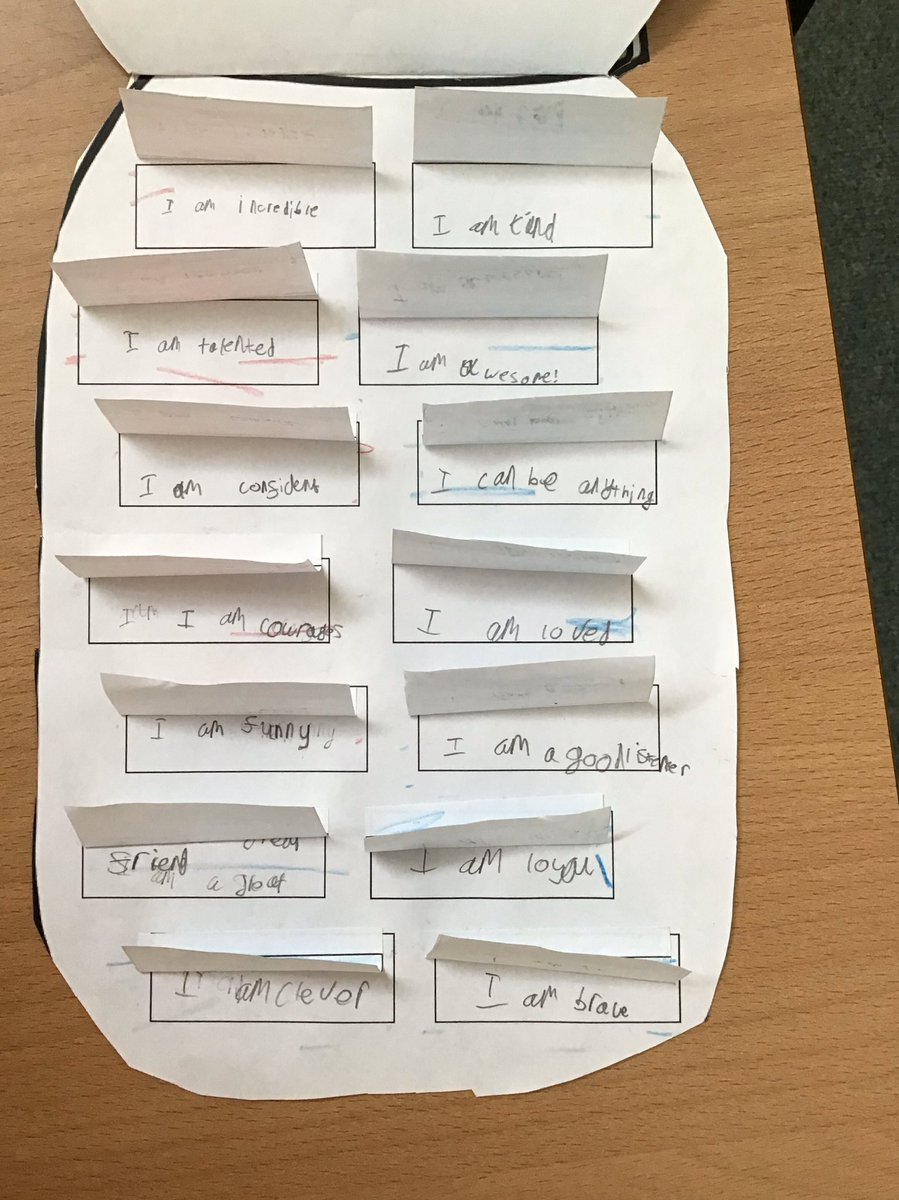 I am incredible
I am kind
I am talented
I am awesome!
I am consident
I can be anything
I am courages
I am loved
I am funny
I am a good listener
great
friend
am a gloat
I am loyal
I am clever
I am brave